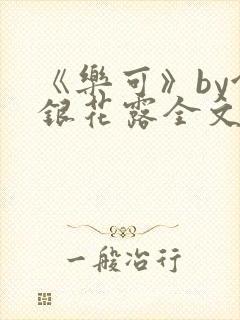 《樂可》by
銀花露全文
一般冶行